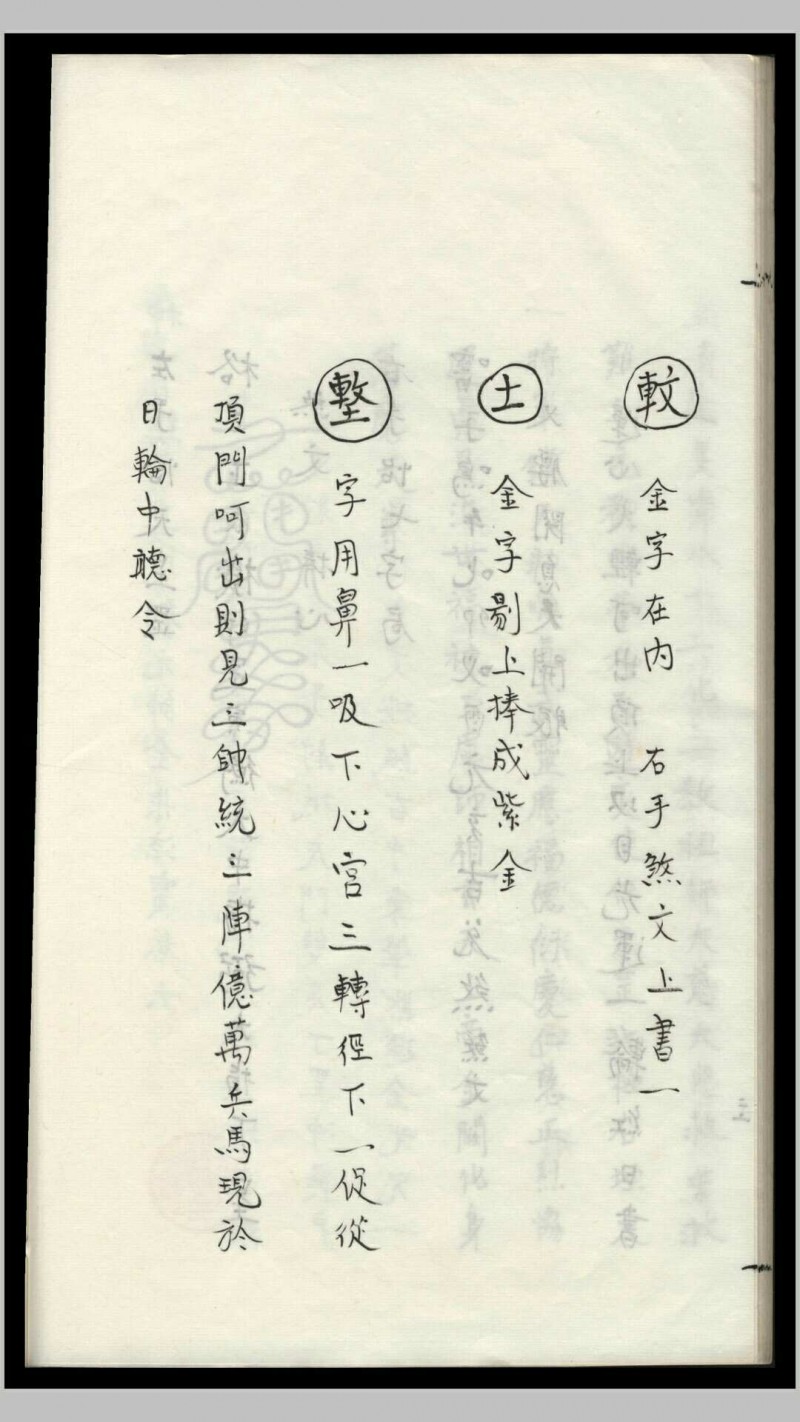 㪅 金字在內 右手煞文上書一
土 金字剔上捧成紫金
墼 字用鼻一吸下心宮三轉徑下一促從
頂門呵出則見三帥統三陣億萬兵馬現於
日輪中聽令